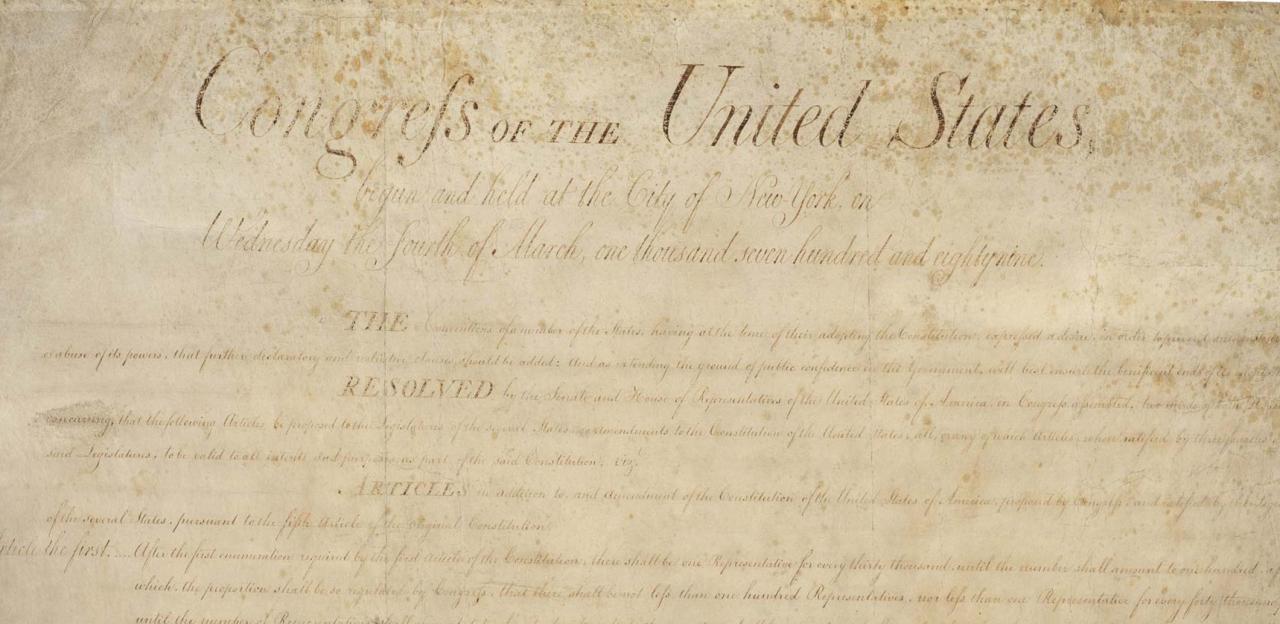 Congreſs OF THE United States,
begun and held at the City of New-York, on
Wednesday the Fourth of March, one thousand seven hundred and eighty nine.
THE Conventions of a number of the States, having at the time of their adopting the Constitution, expressed a desire, in order to prevent
or abuse of its powers, that further declaratory and restrictive clauses should be added: And as extending the ground of public confidence in the Government, will best ensure the beneficent ends of its
RESOLVED by the Senate and House of Representatives of the United States of America, in Congreſs aſsembled, two thirds of both
concurring, that the following Articles be proposed to the Legislatures of the several States, as amendments to the Constitution of the United States, all, or any of which Articles, when ratified by three fourths
said Legislatures, to be valid to all intents and purposes, as part of the said Constitution; vizt.
ARTICLES in addition to, and Amendment of the Constitution of the United States of America, proposed by Congreſs, and ratified by the
of the several States, pursuant to the fifth Article of the original Constitution.
the first.... After the first enumeration required by the first Article of the Constitution, there shall be one Representative for every thirty thousand, until the number shall amount to one hundred,
which, the proportion shall be so regulated by Congreſs, that there shall be not leſs than one hundred Representatives, nor leſs than one Representative for every forty thousand
until the number of Representatives